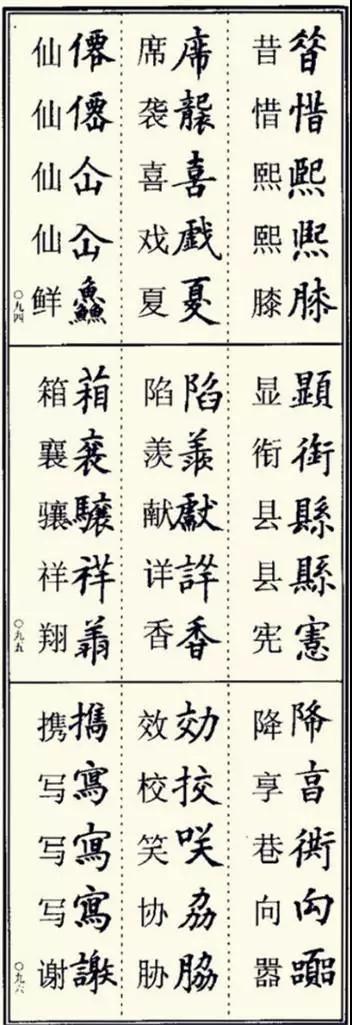 惜熙熈膝
昔惜熙熙膝
席襲喜戯夏
席袭喜戏夏
僊僊仚仚鱻
仙仙仙仙鲜
〇九四
顯衘縣縣憲
显衔县县宪
陷羨獻詳香
陷羡献详香
葙驤祥
箱襄骧祥翔
〇九五
降亯衖向
降享巷向嚣
効挍咲劦脇
效校笑协胁
擕寫寫寫謝
携写写写谢
〇九六